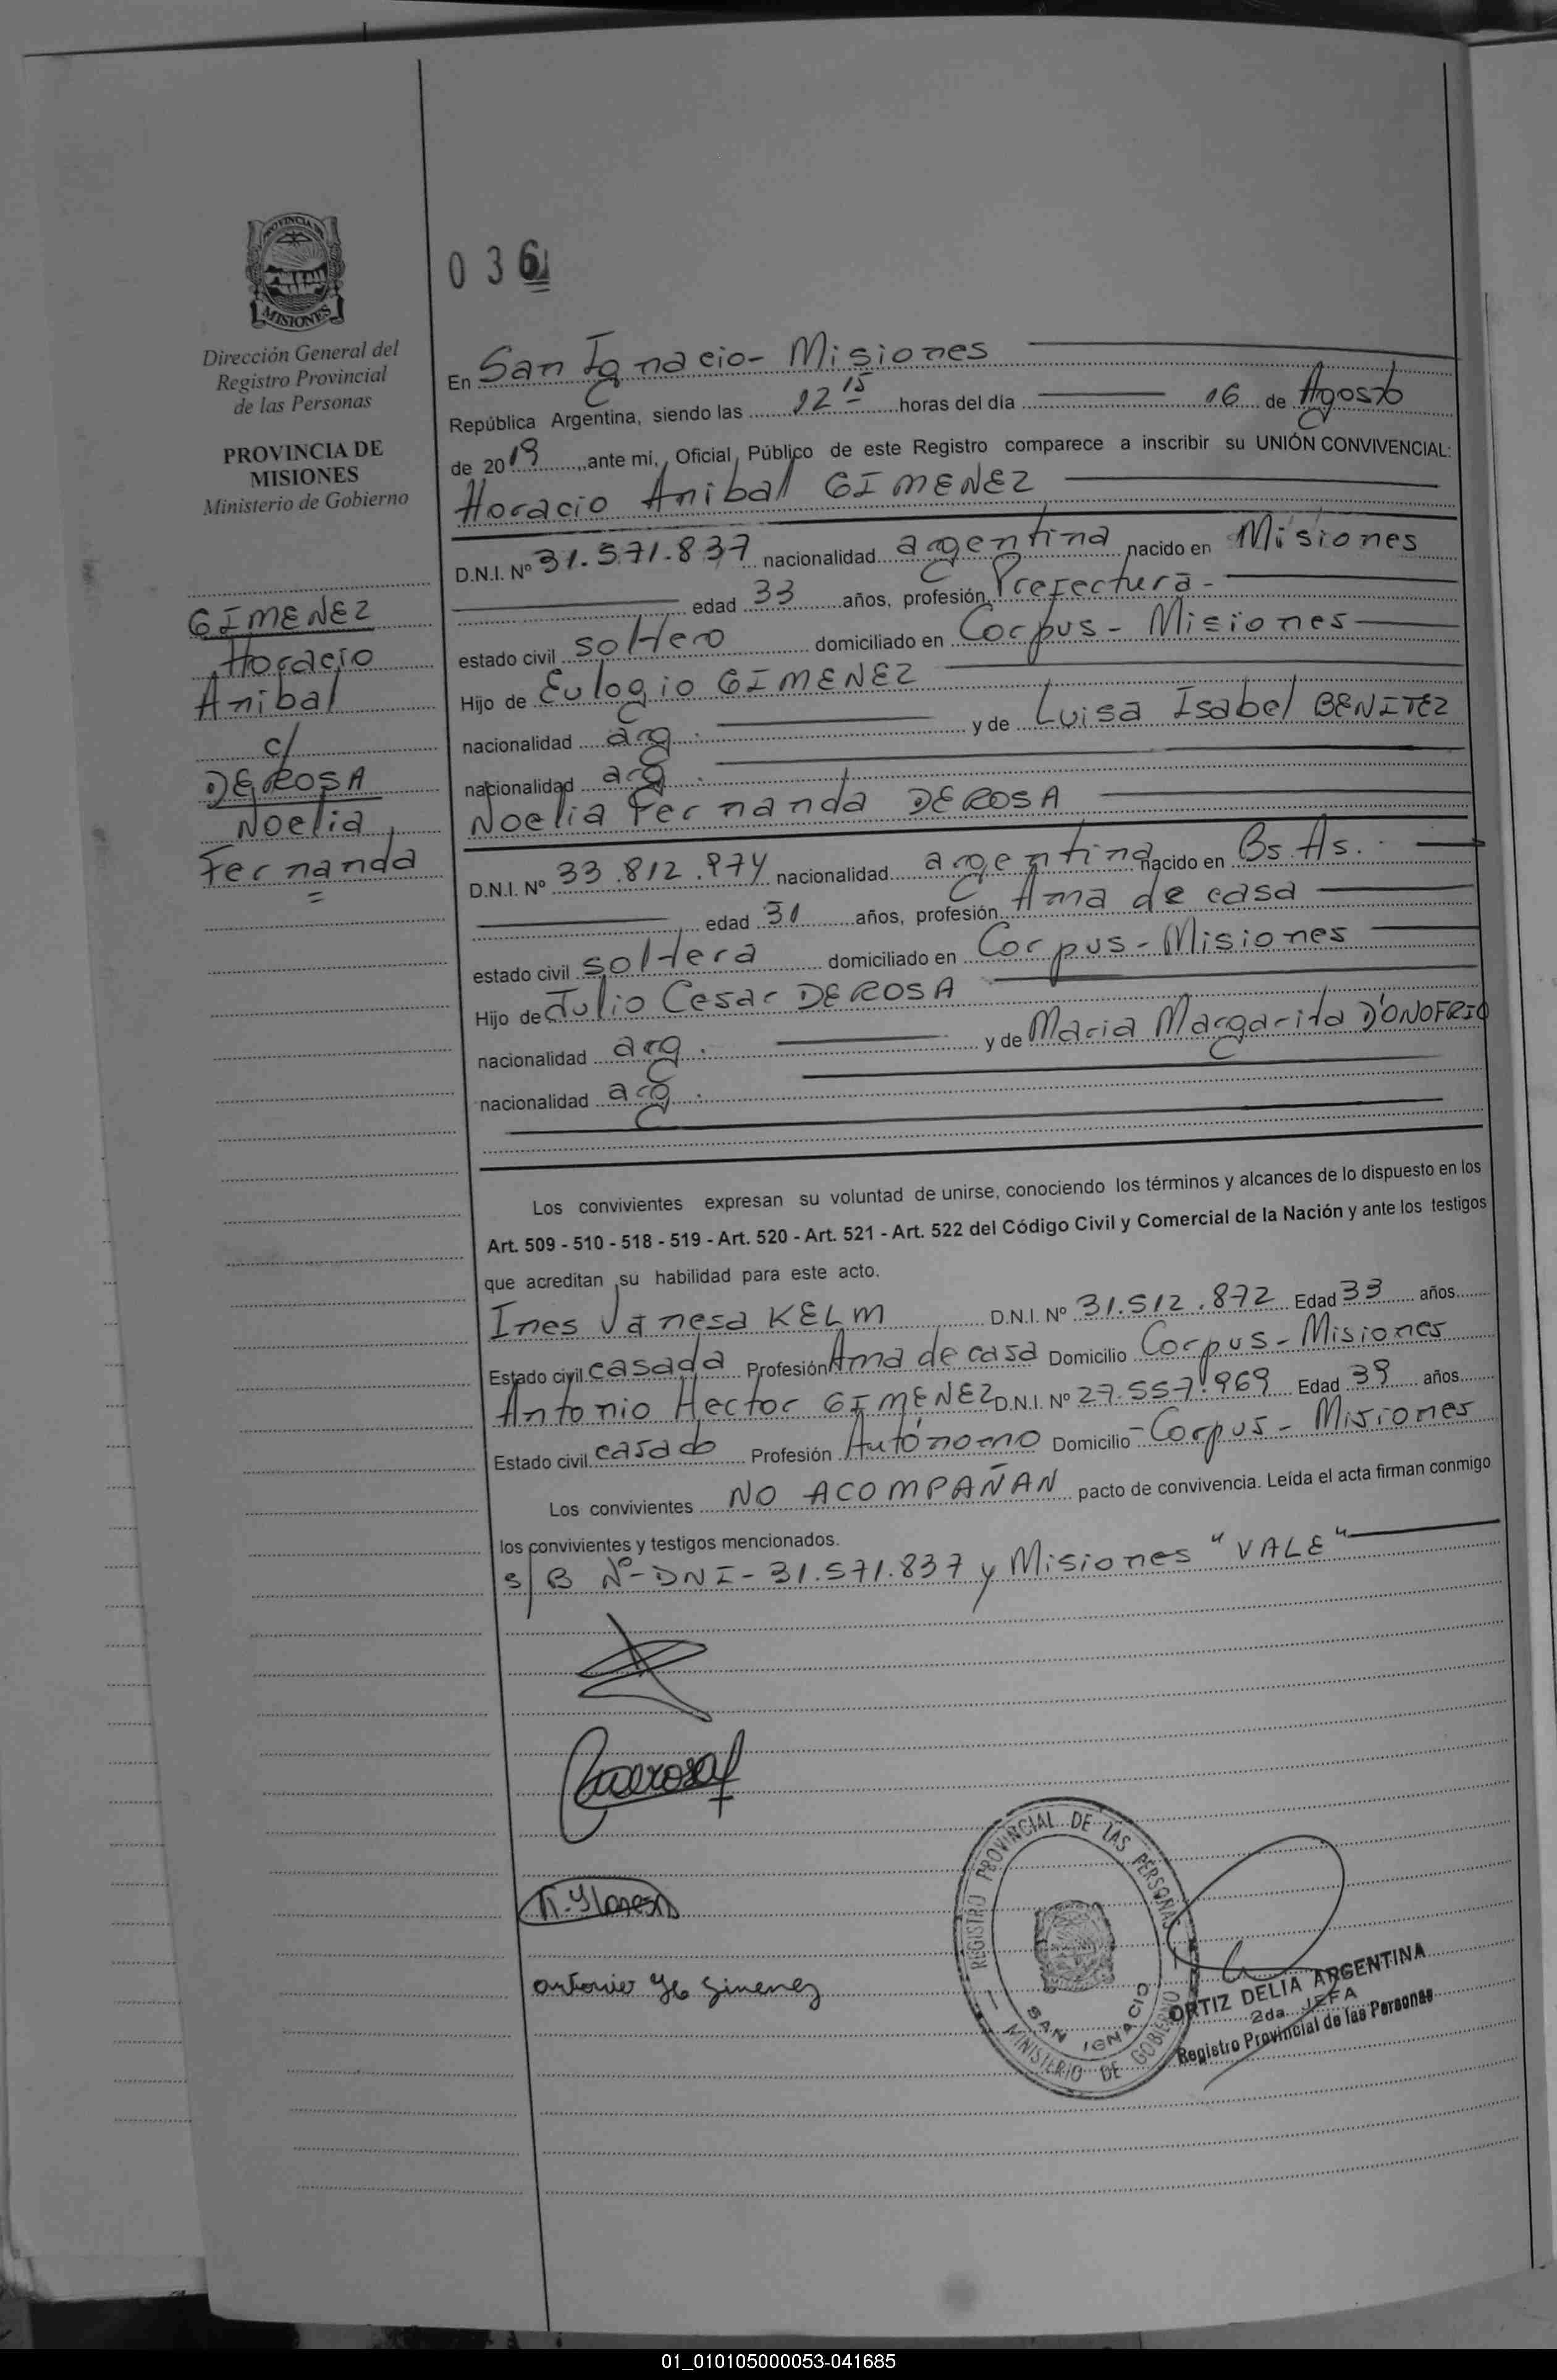 PROVINCIA DE
MISIONES
Dirección General del
Registro Provincial
de las Personas
PROVINCIA DE
MISIONES
Ministerio de Gobierno
GIMENEZ
Horacio
Anibal
c/
DEROSA
Noelia
Fernanda
=
036
En San Ignacio - Misiones
República Argentina, siendo las 12 15 horas del día 16 de Agosto
de 2019 ante mi, Oficial Público de este Registro comparece a inscribir su UNIÓN CONVIVENCIAL:
Horacio Anibal GIMENEZ
D.N.I. Nº 31.571.837 nacionalidad argentina nacido en Misiones
edad 33 años, profesión Prefectura -
estado civil soltero domiciliado en Corpus - Misiones
Hijo de Eulogio GIMENEZ
nacionalidad arg. y de Luisa Isabel BENITEZ
nacionalidad arg.
Noelia Fernanda DEROSA
D.N.I. Nº 33.812.974 nacionalidad argentina nacido en Bs. As.
edad 31 años, profesión Ama de casa
estado civil soltera domiciliado en Corpus - Misiones
Hijo de Julio Cesar DEROSA
nacionalidad arg. y de Maria Margarita D'ONOFRIO
nacionalidad arg.
Los convivientes expresan su voluntad de unirse, conociendo los términos y alcances de lo dispuesto en los
Art. 509 - 510 - 518 - 519 - Art. 520 - Art. 521 - Art. 522 del Código Civil y Comercial de la Nación y ante los testigos
que acreditan su habilidad para este acto.
Ines Vanesa KELM D.N.I. Nº 31.512.872 Edad 33 años
Estado civil casada Profesión Ama de casa Domicilio Corpus - Misiones
Antonio Hector GIMENEZ D.N.I. Nº 27.557.969 Edad 39 años
Estado civil casado Profesión Autónomo Domicilio Corpus - Misiones
Los convivientes NO ACOMPAÑAN pacto de convivencia. Leída el acta firman conmigo
los convivientes y testigos mencionados.
s/B Nº - DNI - 31.571.837 y Misiones "VALE"
antonio H Gimenez
REGISTRO PROVINCIAL DE LAS PERSONAS
SAN IGNACIO
MINISTERIO DE GOBIERNO
ORTIZ DELIA ARGENTINA
2da. JEFA
Registro Provincial de las Personas
01_010105000053-041685